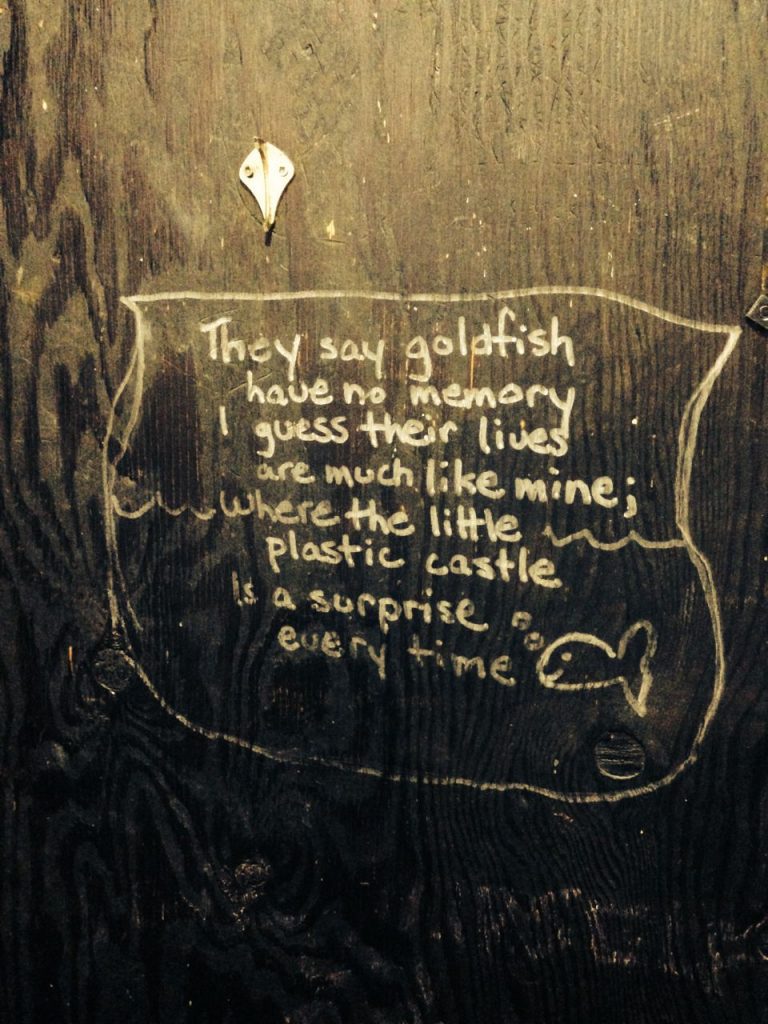 They say goldfish
have no memory
I guess their lives
are much like mine;
where the little
plastic castle
Is a surprise
every time